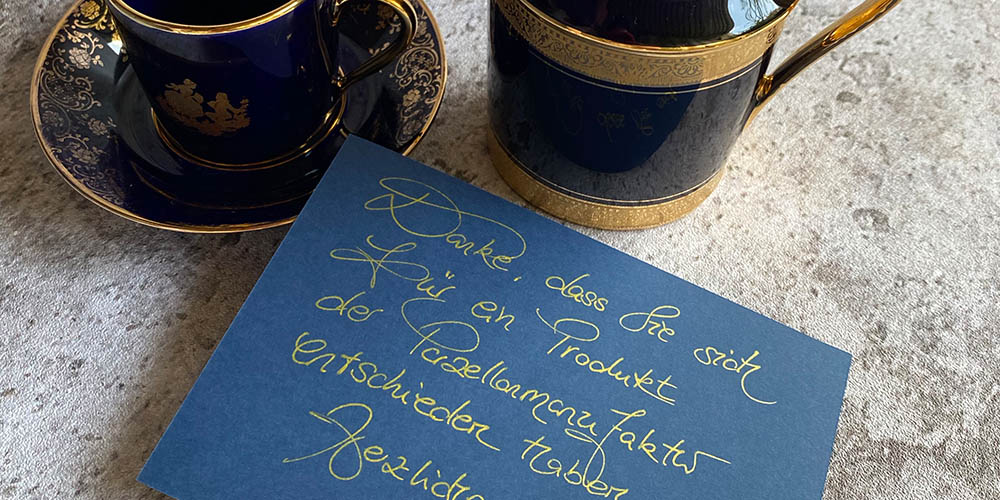 Danke, dass Sie sich
für ein Produkt
der Porzellanmanufaktur
entschieden haben
Herzlichst